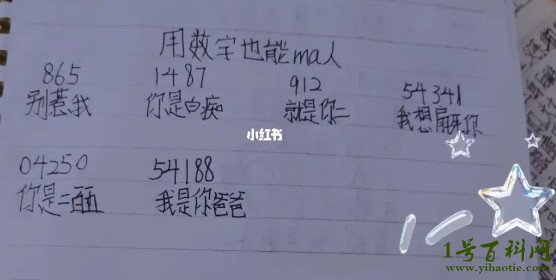 用数字也能ma人
865 1487 912 54341
别惹我 你是白痴 就是你二 我想扇死你
小红书
04250 54188
你是二百五 我是你爸爸
1号百科网
www.yihaotie.com